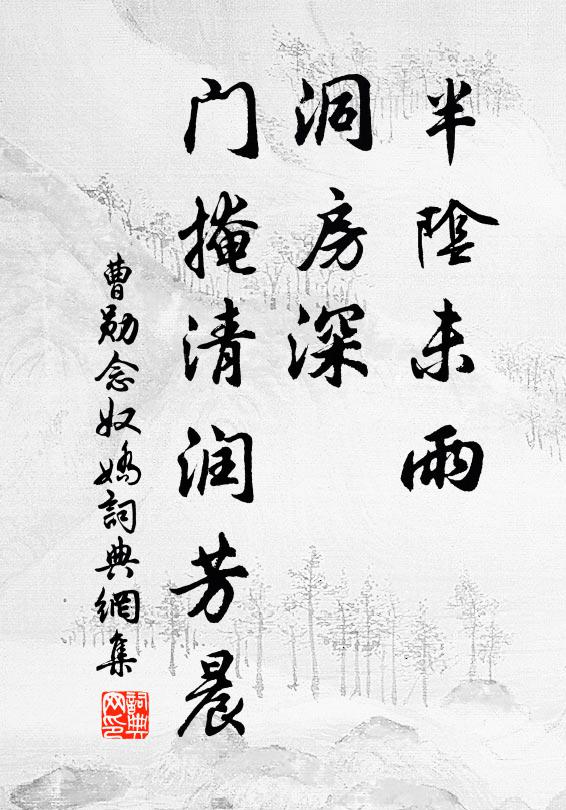 半陰未雨
洞房深
门掩清润芳晨
曹勋念奴嬌詞典網集
詞典网印